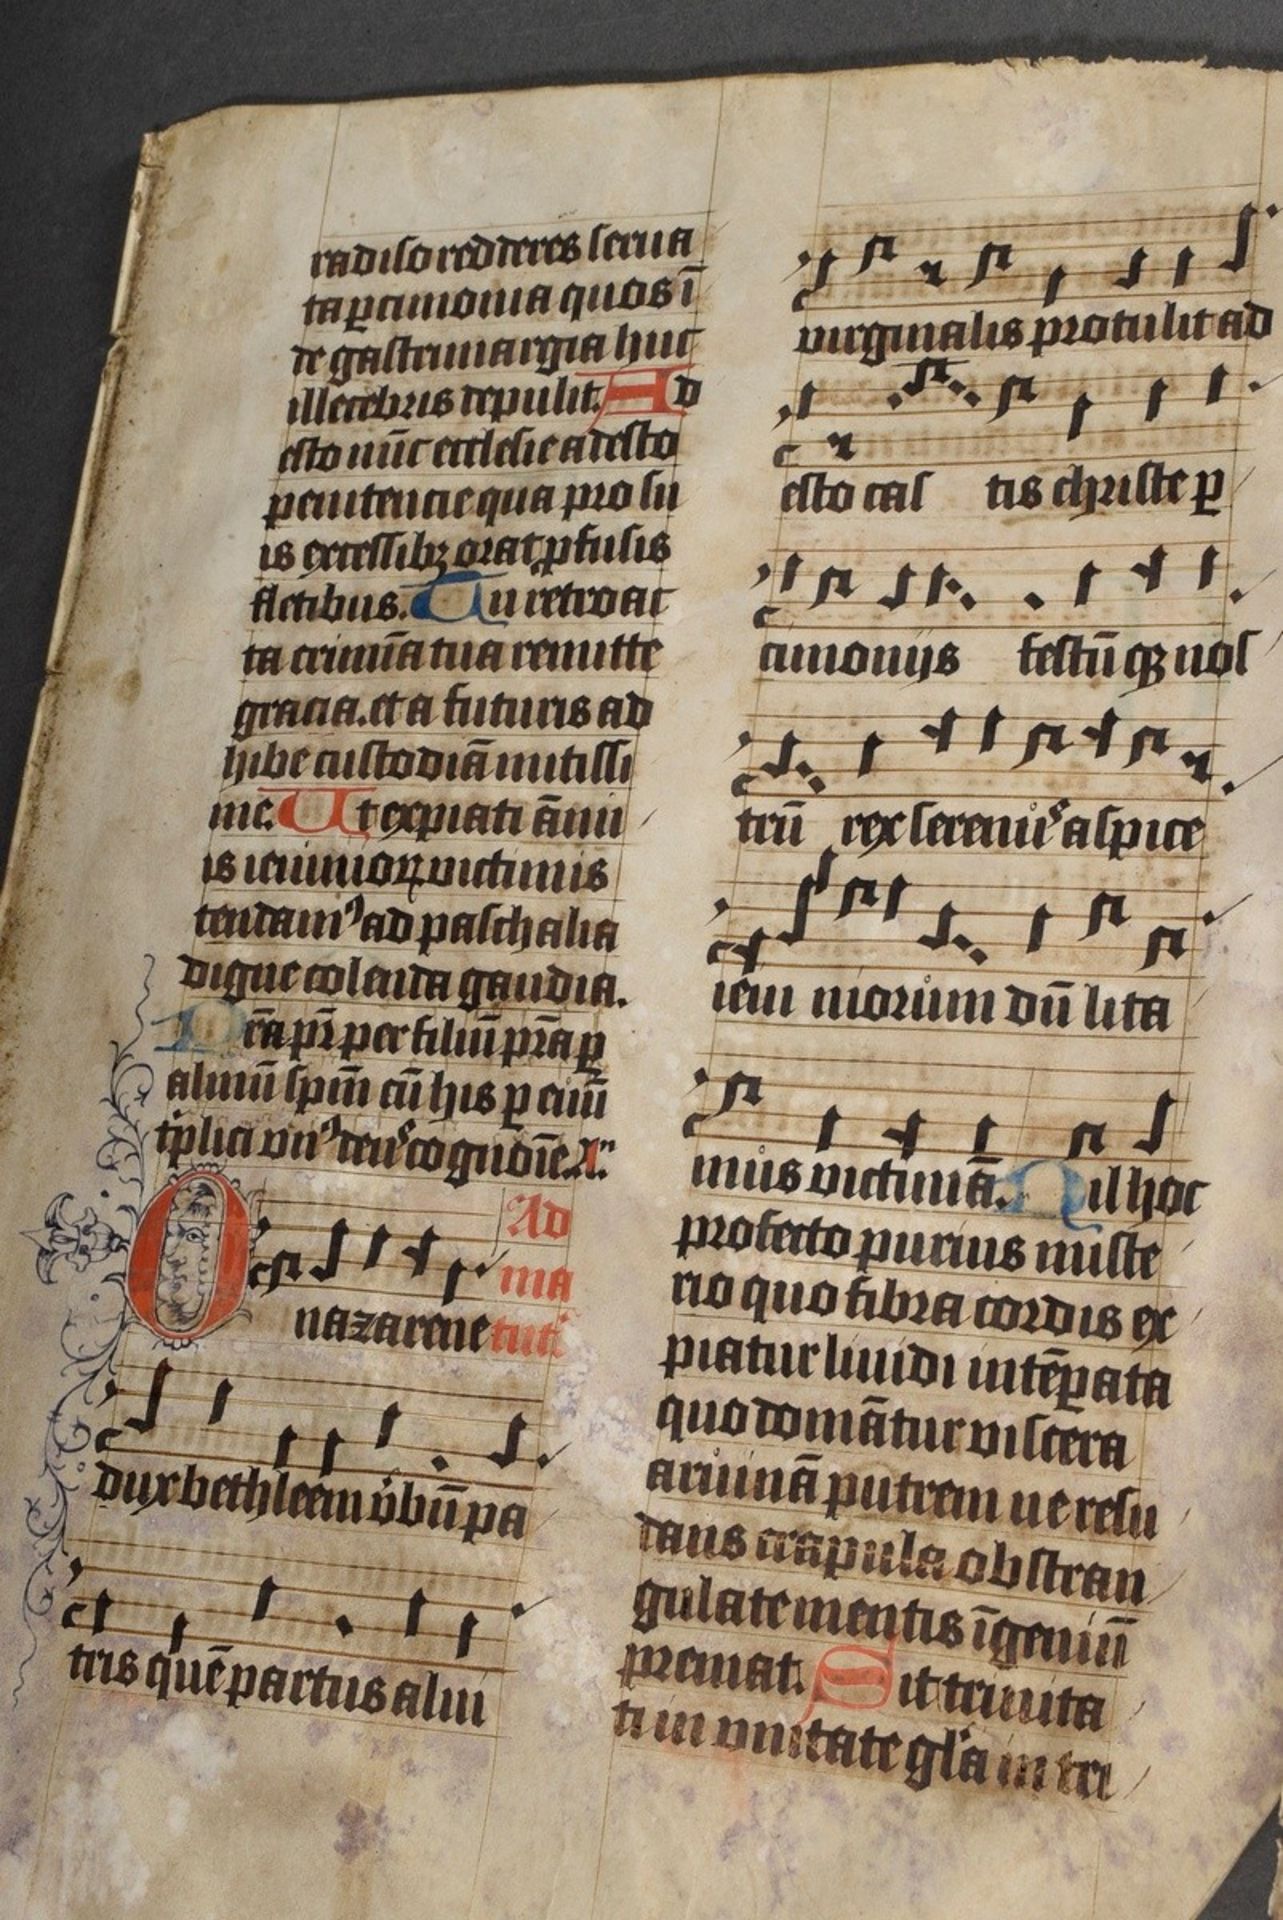 radiso redderes serua
ta ꝑcimonia quos ī
de gastrimargia huc
illecebris depulit. Ad
esto nūc ecclesie adesto
penitencie qua pro su
is excessibꝫ orat ꝓfusis
fletibus. Tu retroac
ta crimīa tua remitte
gracia. et a futuris ad
hibe custodiā mitissi
me. Ut expiati āniu
is ieiunioꝝ victimis
tendamꝰ ad paschalia
digne colenda gaudia.
Pr̄a pr̄ per filiū pr̄a ꝑ
almū spm̄ cū his ꝑ eiuū
tplici vnꝰ deuˢ cognoīe. A.
O nazarene
Ad
ma
tuti
dux bethleem v̾bū pa
tris quē partus alui
virginalis protulit ad
esto cas tis christe ꝑ
cimonijs festūqꝫ nos
trū rex serenuˢ aspice
ieiu niorum dū lita
mus victimā. Nil hoc
profecto purius miste
rio quo fibra cordis ex
piatur liuidi intēꝑata
quo domātur viscera
aruinā putrem ne resu
dans crapula obstran
gulate mentis īgeniū
premat. Sit trinita
ti in vnitate gl̓a in tri